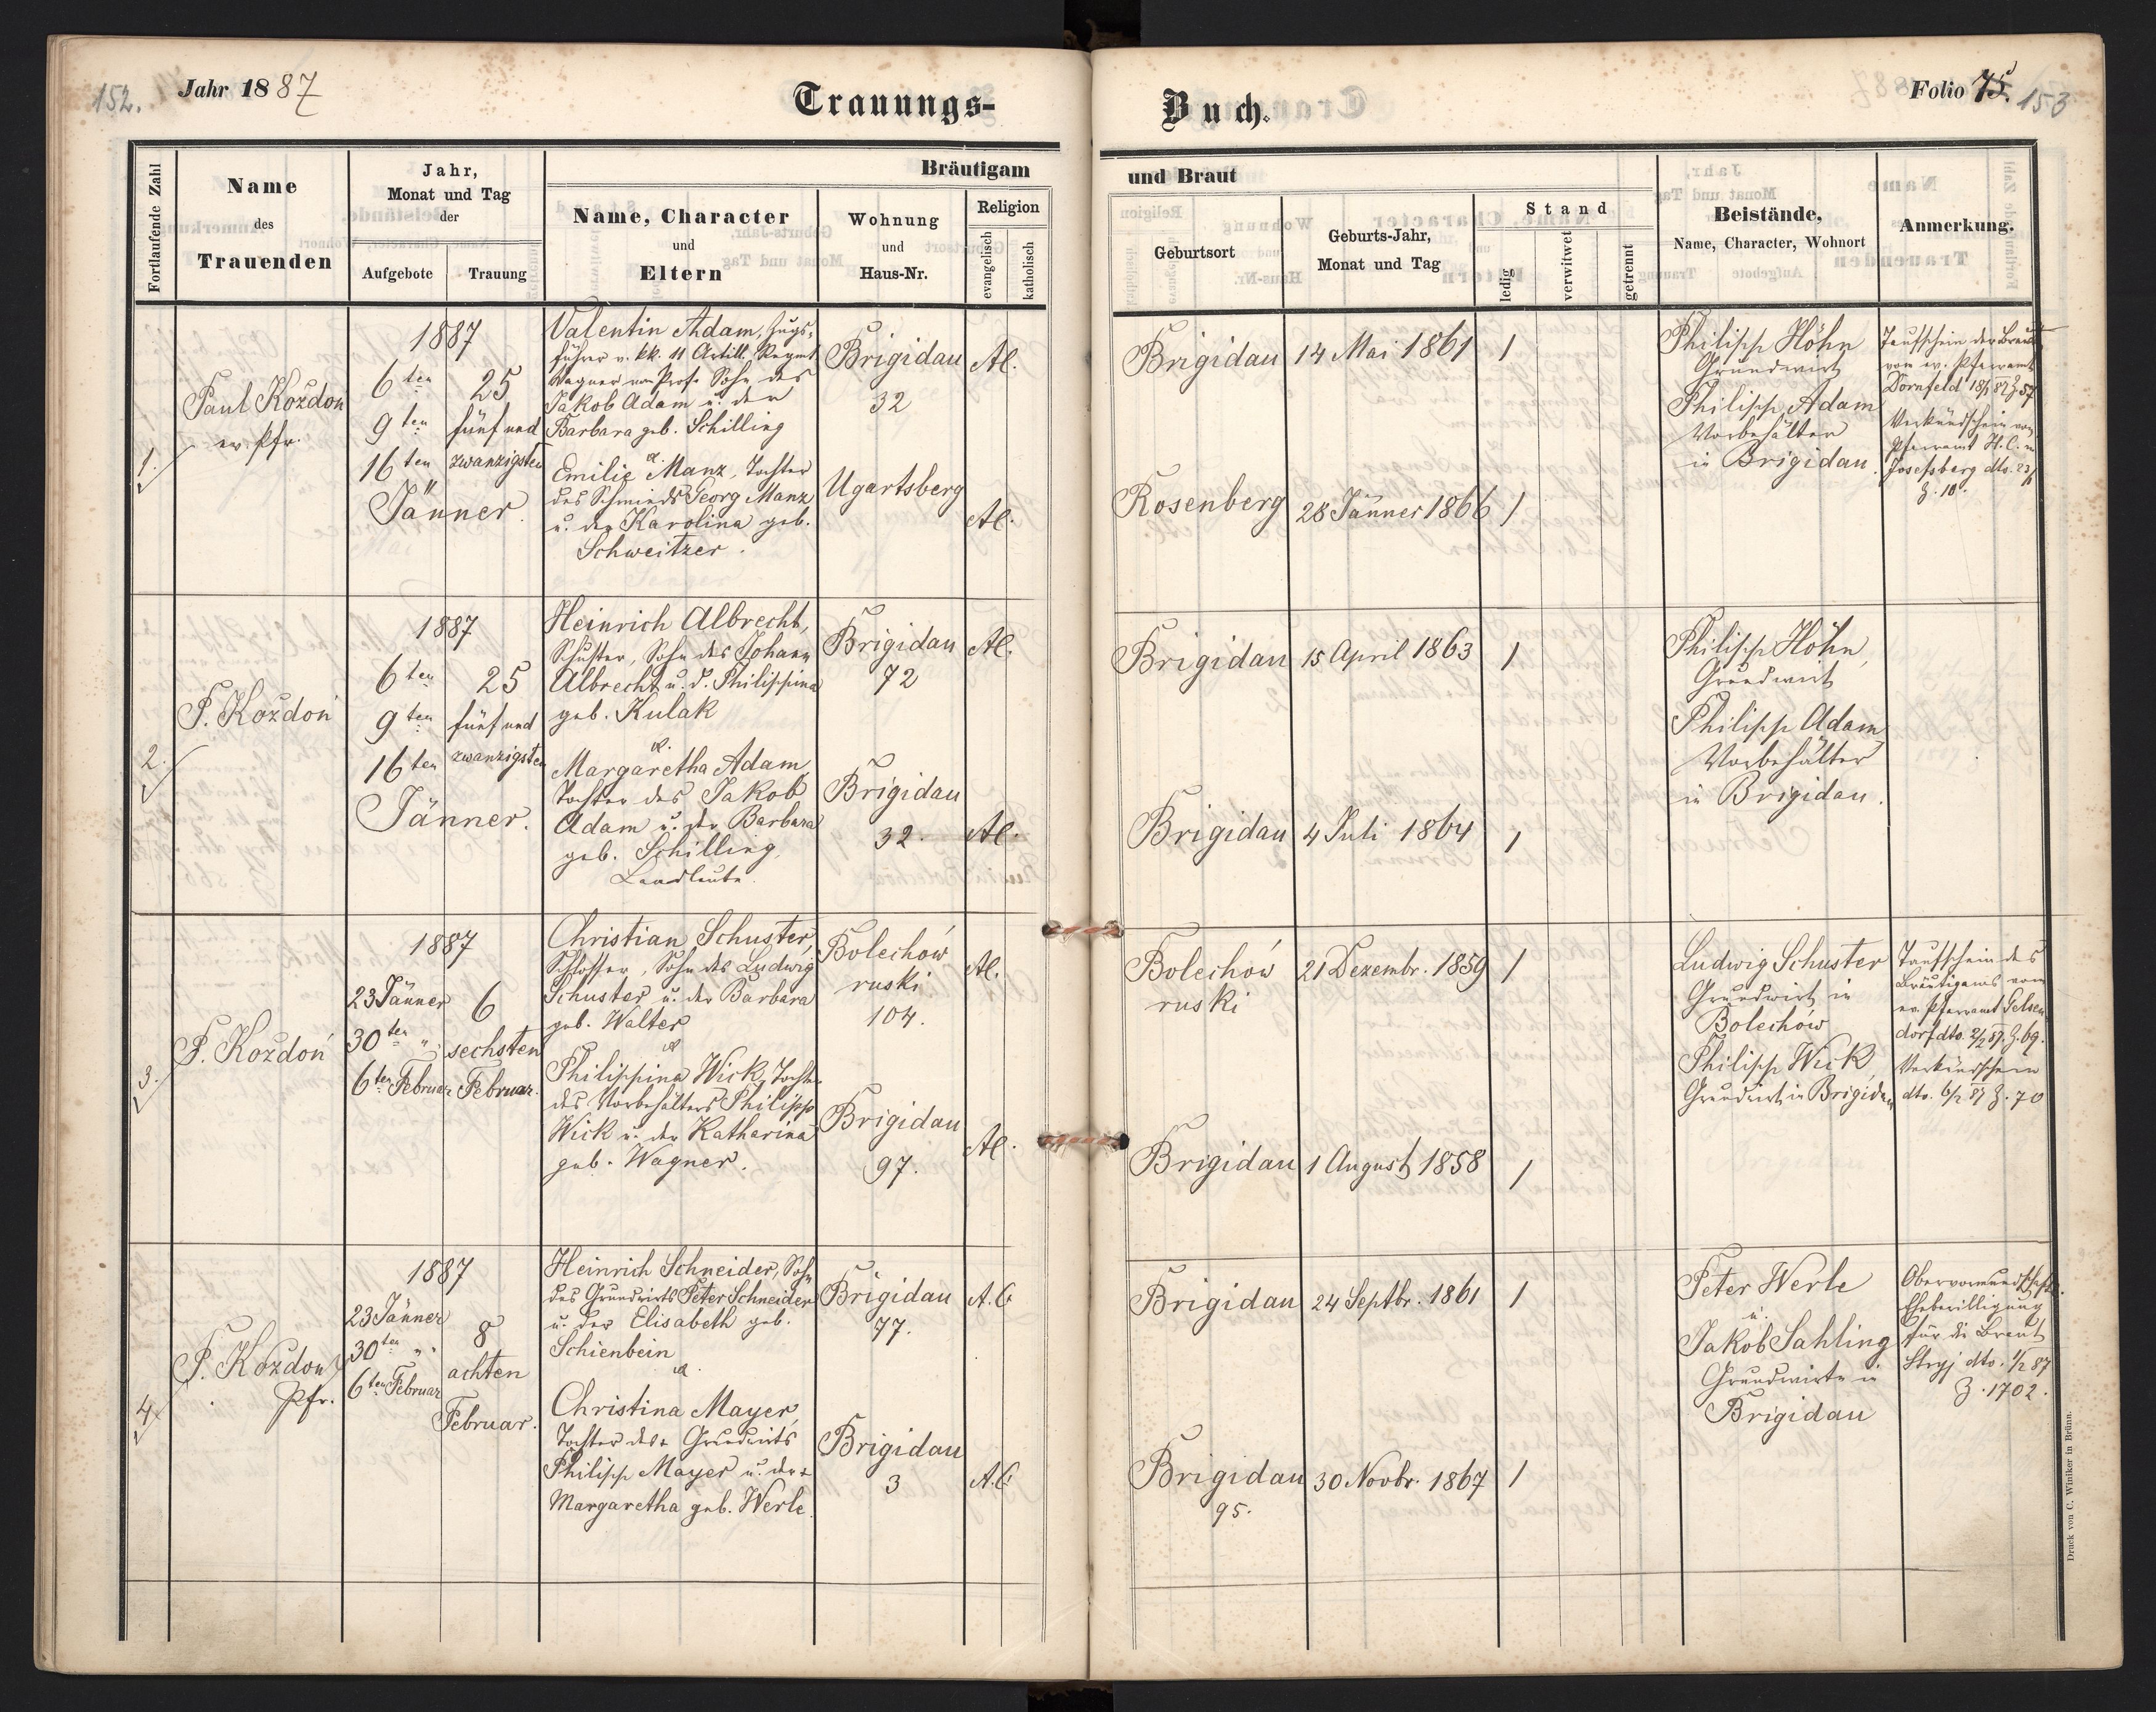 152.
Jahr 1887
Trauungs-
Fortlaufende Zahl
Name
des
Trauenden
Jahr,
Monat und Tag
der
Aufgebote
Trauung
Bräutigam
Name, Character
und
Eltern
Wohnung
und
Haus-Nr.
Religion
evangelisch
katholisch
1.
Paul Kozdoń
ev. Pfr.
1887
6ten
9ten
16ten
Jänner.
25
fünf und
zwanzigsten
Valentin Adam, Zugs-
führer v. kk. 11 Artill. Regmt
Wagner von Prof. Sohn des
Jakob Adam u. der
Barbara geb. Schilling
u.
Emilie Manz, Tochter
des Schmieds Georg Manz
u. der Karolina geb.
Schweitzer.
Brigidau
32
Ugartsberg
A.
A.
2.
P. Kozdoń
1887
6ten
9ten
16ten
Jänner.
25
fünf und
zwanzigsten
Heinrich Albrecht,
Schuster, Sohn des Johann
Albrecht u. d. Philippina
geb. Kulak
u.
Margaretha Adam,
Tochter des Jakob
Adam u. der Barbara
geb. Schilling,
Landleute.
Brigidau
72
Brigidau
32.
A.
A.
3.
P. Kozdoń
1887
23 Jänner
30ten "
6ten Februar
6
sechsten
Februar.
Christian Schuster,
Schlosser, Sohn des Ludwig
Schuster u. der Barbara
geb. Walter
u.
Philippina Wick, Tochter
des Vorbehälters Philipp
Wick u. der Katharina
geb. Wagner.
Bolechów
ruski
104.
Brigidau
97.
A.
A.
4.
P. Kozdoń
Pfr.
1887
23 Jänner
30ten "
6ten Februar
8
achten
Februar.
Heinrich Schneider, Sohn
des Grundwirts Peter Schneider
u. der Elisabeth geb.
Schienbein
u.
Christina Mayer,
Tochter des + Grundwirts
Philipp Mayer u. der +
Margaretha geb. Werle.
Brigidau
77.
Brigidau
3
A.C
A.C
Buch.
Folio 75.
153
und Braut
Geburtsort
Geburts-Jahr,
Monat und Tag
Stand
ledig
verwitwet
getrennt
Beistände,
Name, Character, Wohnort
Anmerkung.
Brigidau
14 Mai 1861
1
Rosenberg
28 Jänner 1866
1
Philipp Höhn
Grundwirt
Philipp Adam
Vorbehälter
in Brigidau.
Taufschein der Braut
vom ev. Pfarramt
Dornfeld 18/1 87 Z 57
Verkündschein vom
Pfarramt H.C. in
Josefsberg dto. 23/1
Z. 10.
Brigidau
15 April 1863
1
Brigidau
4 Juli 1864
1
Philipp Höhn,
Grundwirt
Philipp Adam,
Vorbehälter
in Brigidau.
Bolechów
ruski
21 Dezembr. 1859
1
Brigidau
1 August 1858
1
Ludwig Schuster
Grundwirt in
Bolechów
Philipp Wick,
Grundwirt in Brigidau
Taufschein des
Bräutigams vom
ev. Pfarramt Gelsen-
dorf dto. 2/2 87. Z. 69.
Verkündschein
dto. 6/2 87 Z. 70
Brigidau
24 Septbr. 1861
1
Brigidau
95.
30 Novbr. 1867
1
Peter Werle
u.
Jakob Sahling
Grundwirte in
Brigidau
Obervormundschftl.
Ehebewilligung
für die Braut
Stryj dto. 1/2 87
Z. 1702.
Druck von C. Winiker in Brünn.